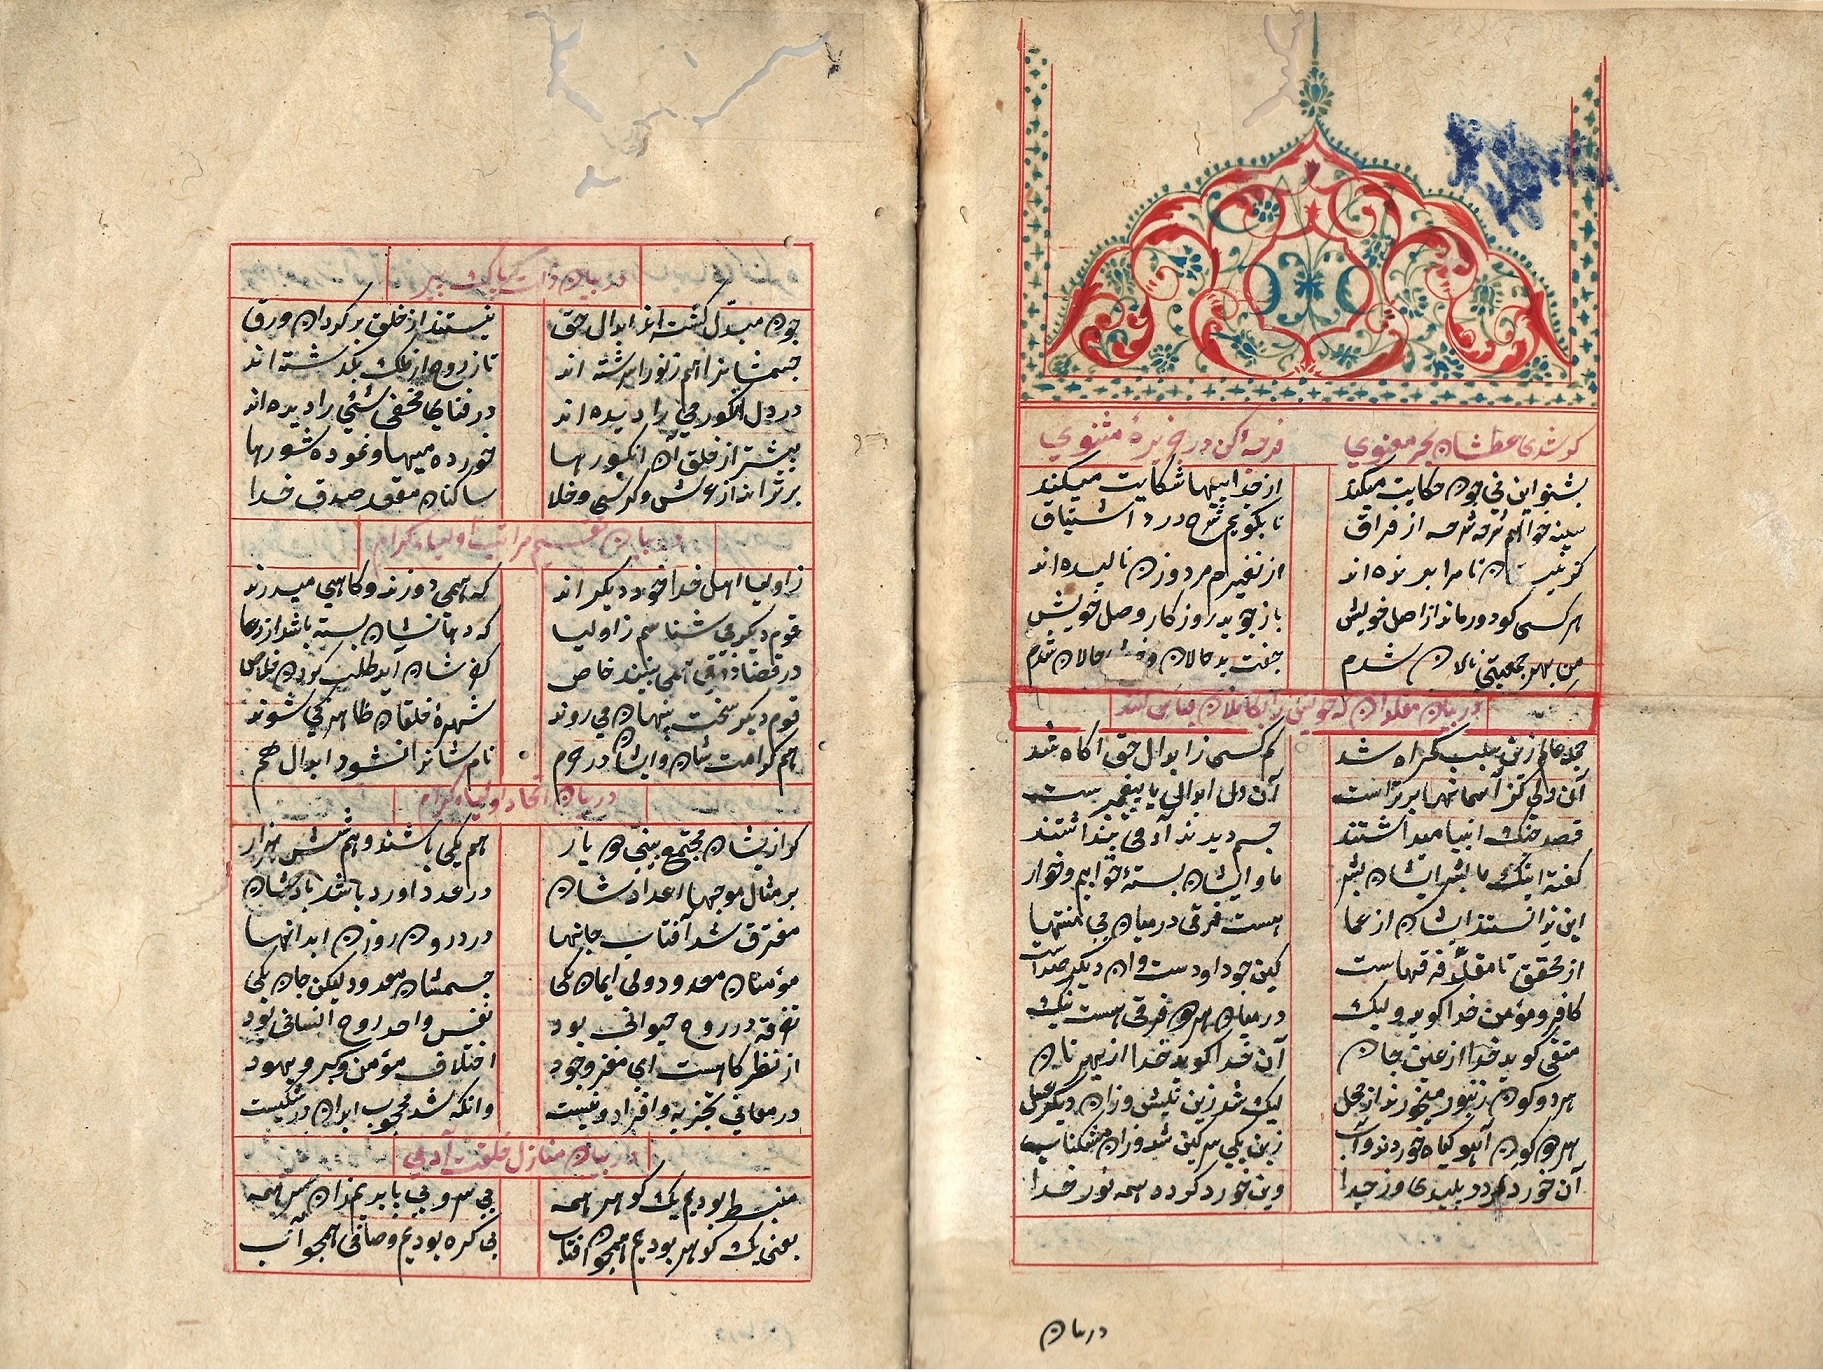 گر شدی عطشان بحر معنوی فرجهٔ کن در جزیرهٔ مثنوی
بشنو این نی چون حکایت میکند از جداییها شکایت میکند
سینه خواهم شرحه شرحه از فراق تا بگویم شرح درد اشتیاق
کز نیستان تا مرا ببریده اند از نفیرم مرد و زن نالیده اند
هر کسی کو دور ماند از اصل خویش باز جوید روزگار وصل خویش
من بهر جمعیتی نالان شدم جفت بدحالان و خوش حالان شدم
در بیان مقلدان که خویش را بکاملان قیاس کنند
جمله عالم زین سبب گمراه شد کم کسی ز ابدال حق آگاه شد
آن ولی کز آسمانها برتر است آن دل ابدالی یا پیغمبر ست
قصد جنگ انبیا میداشتند جسم دیدند آدمی پنداشتند
گفته اینک ما بشر ایشان بشر ما و ایشان بستهٔ خوابیم و خوار
این ندانستند ایشان از عما هست فرقی در میان بی منتها
از محقق تا مقلد فرقهاست کین چو داودست و آن دیگر صداست
کافر و مؤمن خدا گوید ولیک در میان هر دو فرقی هست نیک
متقی گوید خدا از عین جان آن گدا گوید خدا از بهر نان
هر دو گون زنبور میخورند از محل لیک شد زین نیش و زان دیگر عسل
هر دو گون آهو گیاه خوردند و آب زین یکی سرگین شد و زان مشکناب
آن خورد گردد پلیدی زو جدا وین خورد گردد همه نور خدا
در بیان
در بیان ذات پاک پیر
چون مبدل گشته اند ابدال حق نیستند از خلق بر گردان ورق
جسمشان را هم ز نور اسرشته اند تا ز روح از ملک بگذشته اند
در دل انگور می را دیده اند در فنای محض شیٔ را دیده اند
پیشتر از خلق آن انگورها خورده میها و نموده شورها
برترانداز عرش و کرسی و خلا ساکنان مقعد صدق خدا
در بیان تقسیم مراتب اولیاء کرام
ز اولیا اهل خدا خود دیگر اند که همی دوزند و گاهی میدرند
قوم دیگر می شناسم ز اولیا که دهانشان بسته باشد از دعا
در قضا ذوقی همی بینند خاص کفرشان آید طلب کردن خلاص
قوم دیگر سخت پنهان می روند شهرهٔ خلقان ظاهر کی شوند
هم کرامت شان و ایشان در حرم نام شانرا نشنود ابدال هم
در بیان اتحاد اولیاء کرام
گر از ایشان مجتمع بینی دو یار هم یکی باشند و هم شش هزار
بر مثال موجها اعدادشان در عدد آورد باشد بادشان
مفترق شد آفتاب جانها در درون روزن ابدانها
مؤمنان معدود ولی ایمان یکی جسمشان معدود لیکن جان یکی
تفرقه در روح حیوانی بود نفس واحد روح انسانی بود
از نظرگاهست ای مغز وجود اختلاف مؤمن و گبر و یهود
در معانی تجزیه و افراد نیست وانکه شد محجوب ابدان در شکیست
در بیان منازل خلقت آدمی
منبسط بودیم یک گوهر همه بی سر و بی پا بدیم زان سر همه
یعنی یک گوهر بودیم همچون آفتاب بی گره بودیم و صافی همچو آب